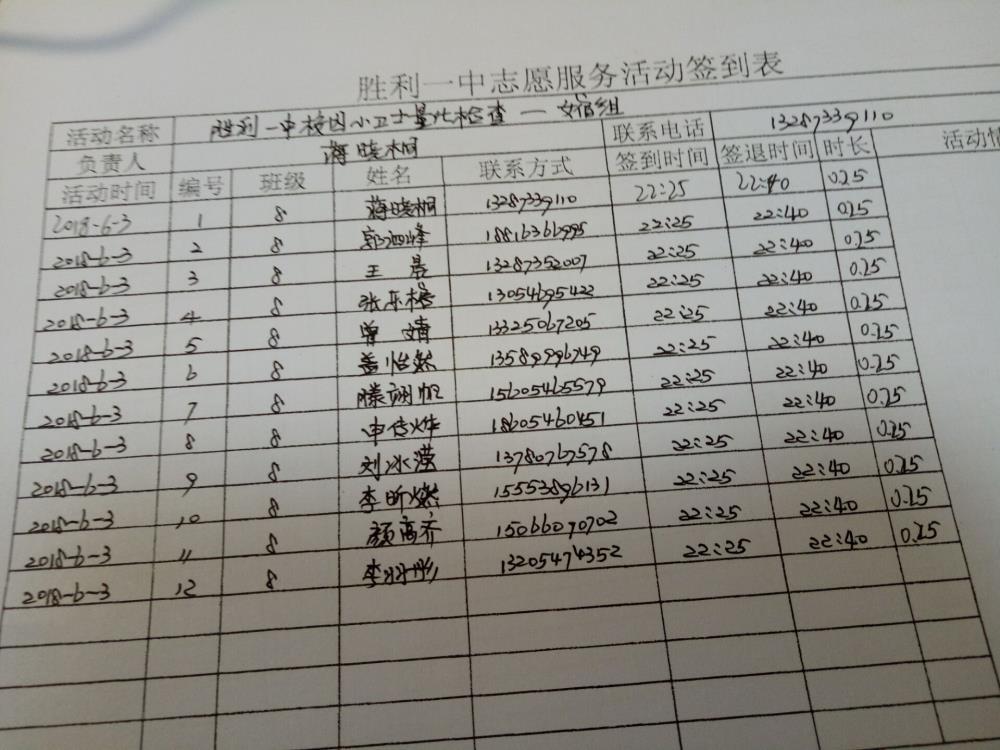 胜利一中志愿服务活动签到表
活动名称 胜利一中校园小卫士量化检查 — 女宿组 联系电话 13287339110
负责人 蒋晓桐
活动时间 编号 班级 姓名 联系方式 签到时间 签退时间 时长 活动情
2018-6-3 1 8 蒋晓桐 13287339110 22:25 22:40 0.25
2018-6-3 2 8 18816366995 22:25 22:40 0.25
2018-6-3 3 8 王晨 13287352007 22:25 22:40 0.25
2018-6-3 4 8 张乐 13054695422 22:25 22:40 0.25
2018-6-3 5 8 曾靖 13325067205 22:25 22:40 0.25
2018-6-3 6 8 盖怡然 13589996749 22:25 22:40 0.25
2018-6-3 7 8 滕翊帆 15605465579 22:25 22:40 0.25
2018-6-3 8 8 申传烨 18605460451 22:25 22:40 0.25
2018-6-3 9 8 刘冰滢 13780767578 22:25 22:40 0.25
2018-6-3 10 8 李昕燃 15553896131 22:25 22:40 0.25
2018-6-3 11 8 颜高齐 15066070702 22:25 22:40 0.25
2018-6-3 12 8 李 13205474352 22:25 22:40 0.25